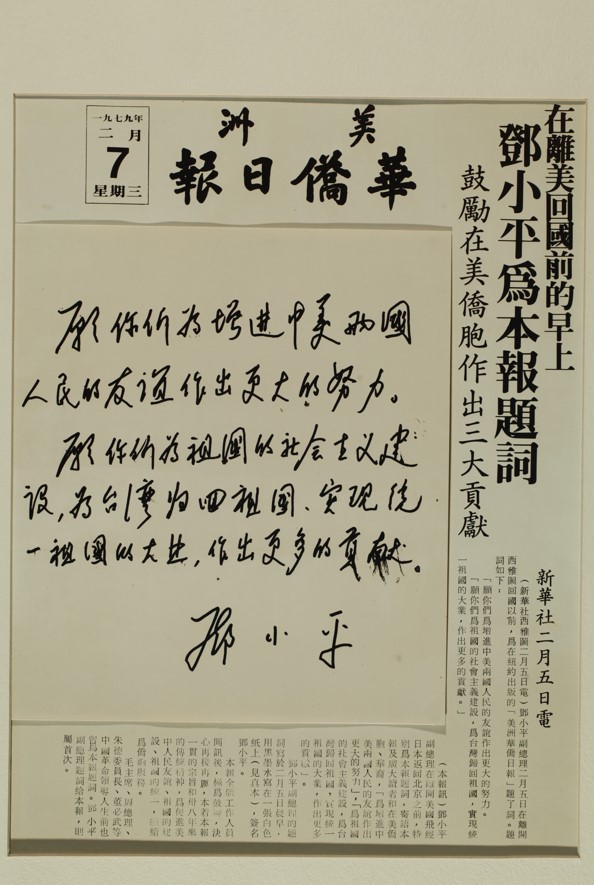 在離美回國前的早上
鄧小平爲本報題詞
鼓勵在美僑胞作出三大貢獻
美洲
華僑日報
一九七九年
二月
7
星期三
願你们為增进中美兩國
人民的友谊作出更大的努力。
願你们為祖國的社会主义建
设，為台灣归回祖国、实现统
一祖國的大业，作出更多的贡献。
鄧小平
新華社二月五日電
（新華社西雅圖二月五日電）鄧小平副總理二月五日在離開
西雅圖回國以前，爲在紐約出版的「美洲華僑日報」題了詞。題
詞如下：
「願你們爲增進中美兩國人民的友誼作出更大的努力。
「願你們爲祖國的社會主義建設，爲台灣歸回祖國，實現統
一祖國的大業，作出更多的貢獻。」
（本報訊）鄧小平
副總理在離開美國飛經
日本返回北京之前，特
別爲本報題詞，寄語本
報及廣大讀者和在美僑
胞、華裔，「爲增進中
美兩國人民的友誼作出
更大的努力」，「爲祖國
的社會主義建設，爲台
灣歸回祖國，實現統一
祖國的大業，作出更多
的貢獻」。
鄧小平副總理的題
詞寫於二月五日晨早，
用黑墨水寫在一張白色
紙上（見眞本），簽名
鄧小平。
本報全體工作人員
聞訊後，極爲鼓舞，決
心再接再厲，本若本報
一貫的宗旨和卅八年來
的傳統精神，爲促進美
中人民友誼、祖國的建
設、祖國的統一，繼續
爲僑胞服務。
毛主席、周總理、
朱德委員長、董必武等
中國革命領導人生前也
曾爲本報題詞。鄧小平
副總理題詞給本報，則
屬首次。